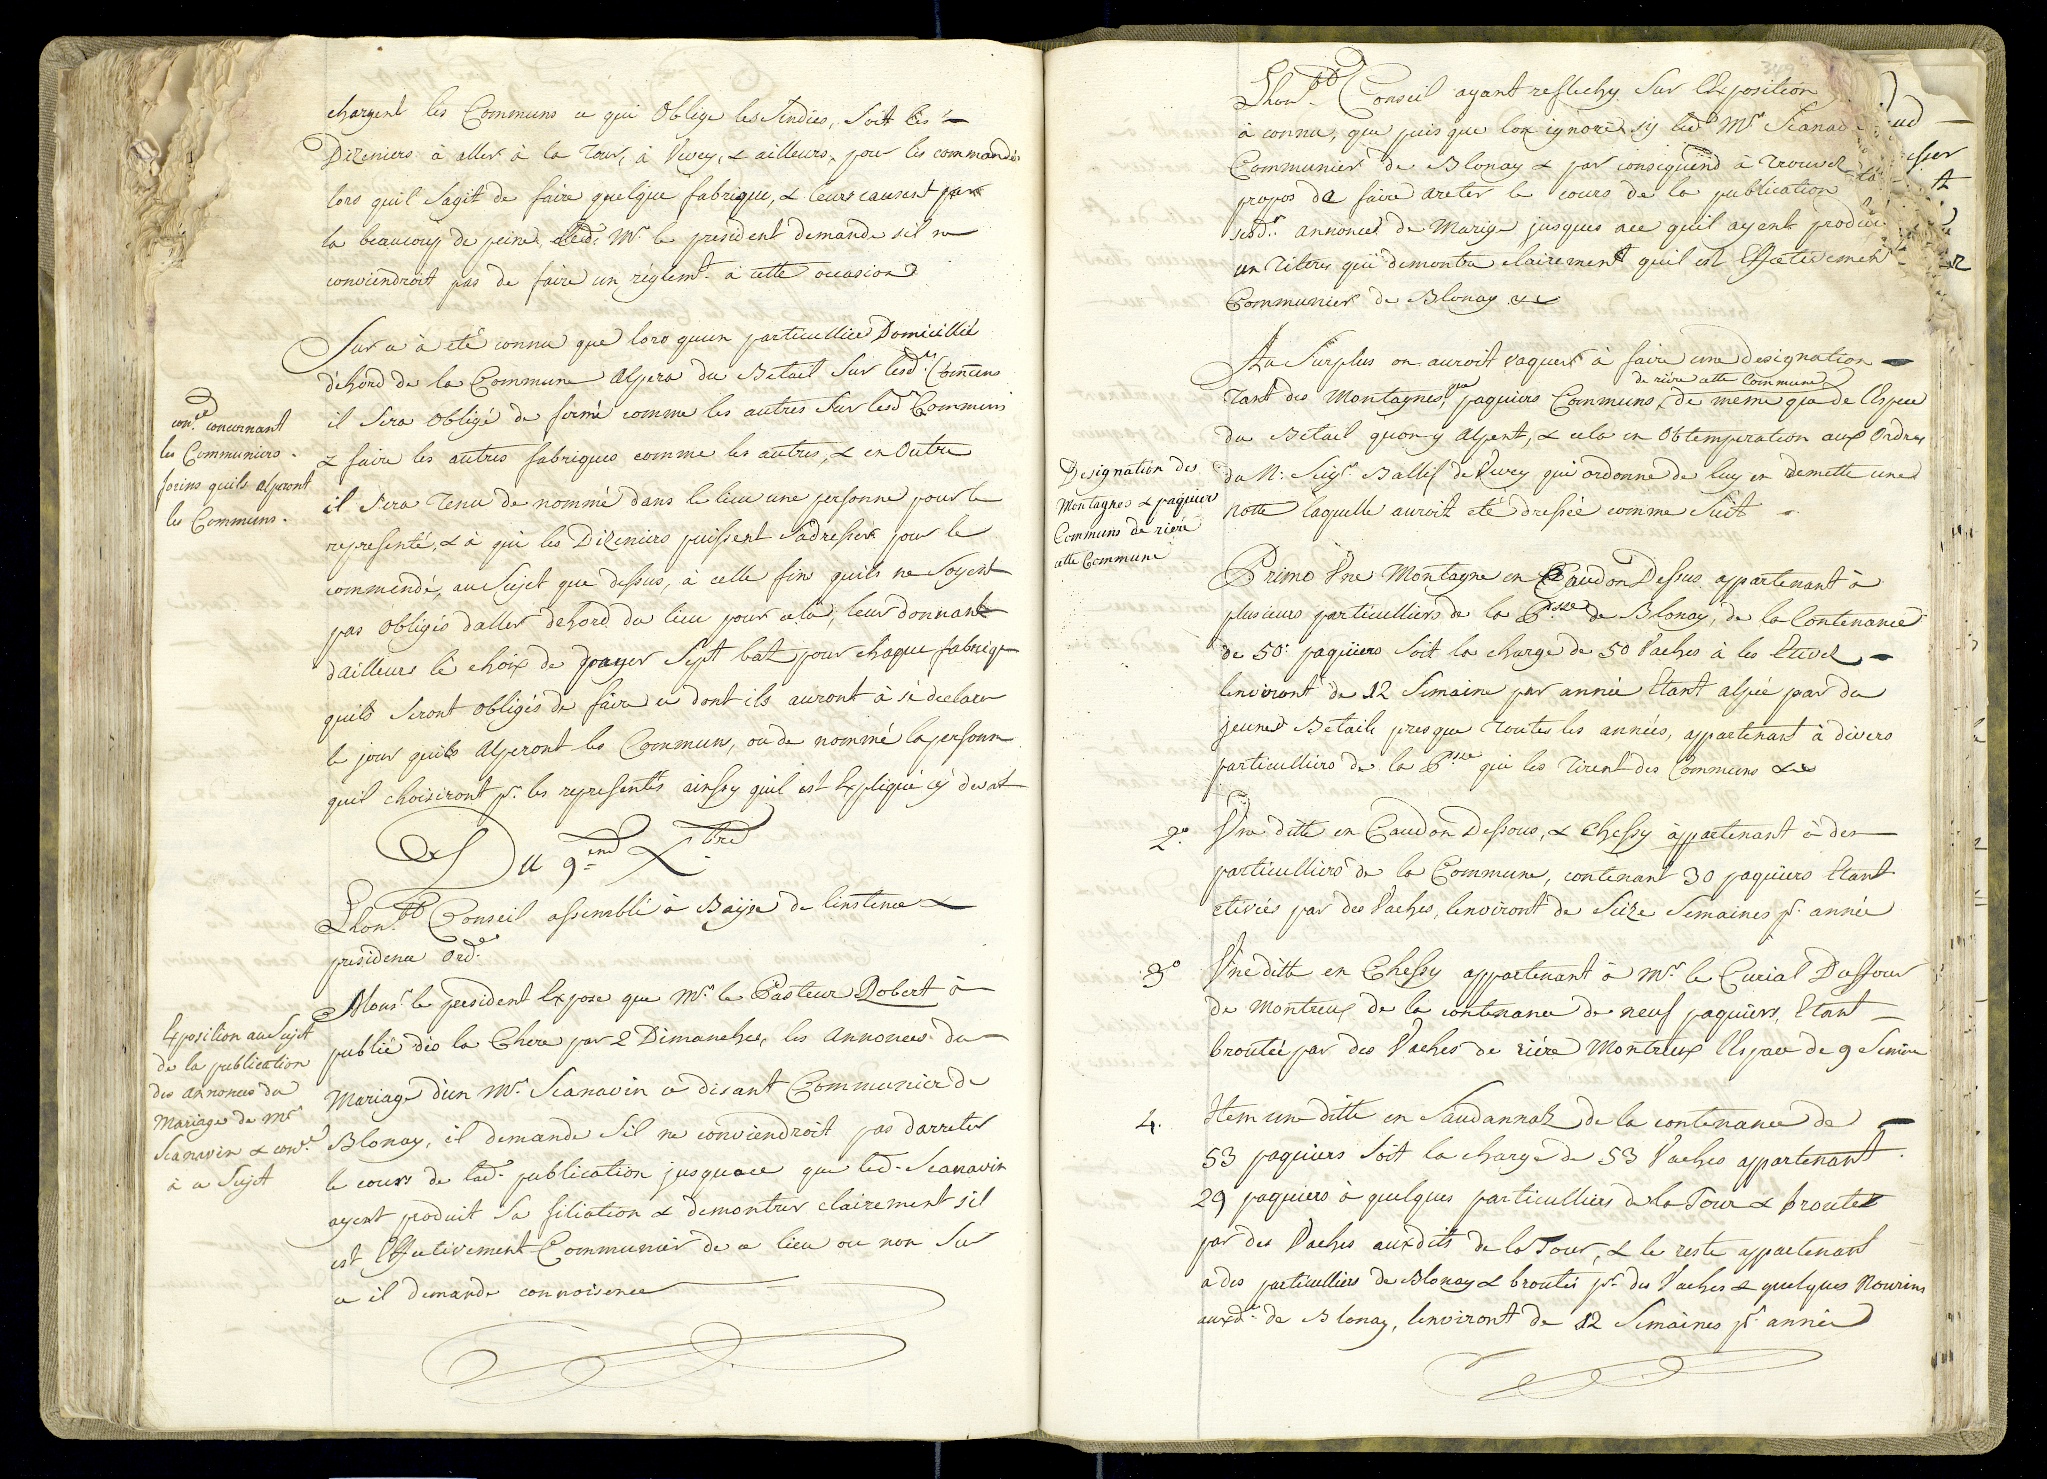 chargent les Communs ce qui Oblige les Sindics, soit les
Dizeniers à aller à la Tour, à Vevey, & ailleurs, pour les commandés
lors quil sagit de faire quelque fabrique, & leurs causent par
la beaucoup de peine, Led. Mr. le president demande sil ne
conviendroit pas de faire un réglemt. à cette occasion
Sur ce à eté connu que lors quun particullier Domicillié
dehord de la Commune Alpera du Betail sur lesd.s Comuns
il sera obligé de firmé comme les autres sur lesd. Communs
& faire les autres fabriques comme les autres, & en Outre
il sera tenu de nommé dans le lieu une personne pour le
representé, & à qui les Dizeniers puissent sadresser pour le
commandé, au sujet que dessus, à celle fin quils ne soyent
pas obligés daller dehord du lieu pour cela, leur donnant
dailleurs le choix de payer sept bat. pour chaque fabrique
quils seront obligés de faire ce dont ils auront à se declarer
le jour quils alperont les Communs, ou de nommé la personne
quil choisiront pr. les representés ainsy quil est Expliqué cy devat
con.ce concernant
les Communiers
forins quils alperont
les Communs.
Du 9.end Xbre
Lhon.ble Conseil assemblé à Bayse de linstence &
presidence ord.e
Mons.r le president Expose que Mr. le Pasteur Dobert à
publié dès la Chere par 2 Dimanches, les Annonces du
Mariage d'un Mr. Scanavin ce disant Communier de
Blonay, il demande sil ne conviendroit pas darreter
le cours de lad. publication jusquace que led. Scanavin
ayent produit sa filiation & demontrer clairement sil
est Effectivement Communier de ce lieu ou non Sur
ce il demande connoisence
Exposition au Sujet
de la publication
des annonces du
Mariage de Mr
Scanavin & con.ce
à ce Sujet
Lhon.ble Conseil ayant reflechy sur lExposition
à connu, que puis que lon ignore sy led. Mr. Scanav
Communier de Blonay & par consiquend à trouvé
propos de faire areter le cours de la publication
sesd.s annonces de Marige jusques ace quil ayent produit
un titres qui demontre clairement quil est Effectivement
Communier de Blonay &c
Au Surplus on auroit vaquer à faire une designation
tant des Montagnes, que paquiers Communs, de riére cette Commune de meme que de lEspece
du Betail quon y Alpent, & cela en Obtemperation aux Ordres
du N: Seigr. Ballif de Vevey qui ordonne de luy en remettre une
notte laquelle auroit eté dressée comme suit
Designation des
Montagnes & paquier
Communs de riere
cette Commune
Primo Une Montagne en Caudon Dessus appartenant à
plusieurs particulliers de la P.sse de Blonay, de la Contenance
de 50. paquiers soit la charge de 50 Vaches à les Etiver
lenviront de 12 Semaine par année Etant alpée par du
jeune Betail presque toutes les années, appartenant à divers
particulliers de la P.sse qui les tirent des Communs &c
2° Une ditte en Caudon Dessous, & Chessy appartenant à des
particulliers de la Commune, contenant 30 paquiers Etant
etivées par des Vaches, lenviront de Seize Semaines pr. année
3° Une ditte en Chessy appartenant à Mr. le Curial Duffour
de Montreux de la contenance de neuf paquiers, Etant
broutée par des Vaches de riére Montreux lEspace de 9 Semaine
4. Item une ditte en Saudannaz de la contenance de
53 paquiers soit la charge de 53 Vaches appartenant
29 paquiers à quelques particulliers de la Tour & broutés
par des Vaches auxdits de la Tour, & le reste appartenant
a des particulliers de Blonay & broutés pr. des Vaches & quelques Nourins
auxd. de Blonay, lenviront de 12 Semaines pr. année